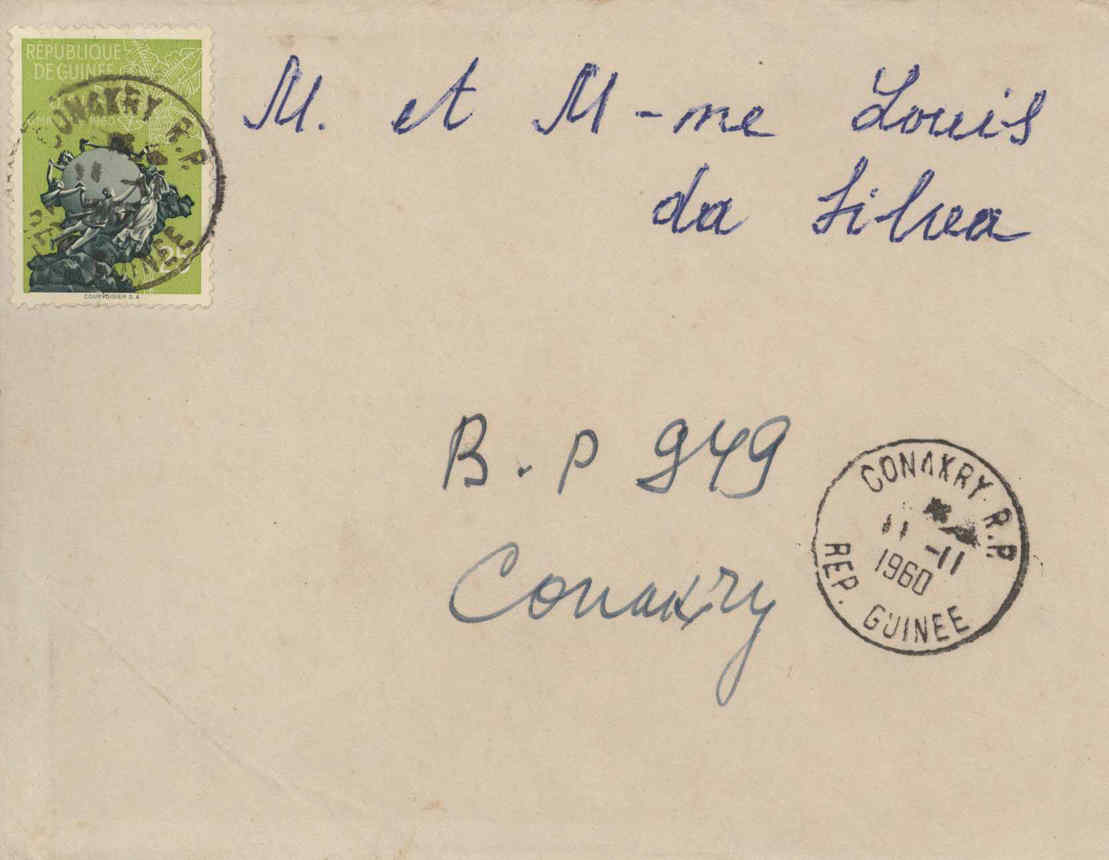 RÉPUBLIQUE
DE GUINÉE
CONAKRY R.P.
11
GUINEE
COURVOISIER S.A.
M. et M-me Louis
da Silva
B.P 949
Conakry
CONAKRY R.P.
11 -11
1960
REP. GUINEE